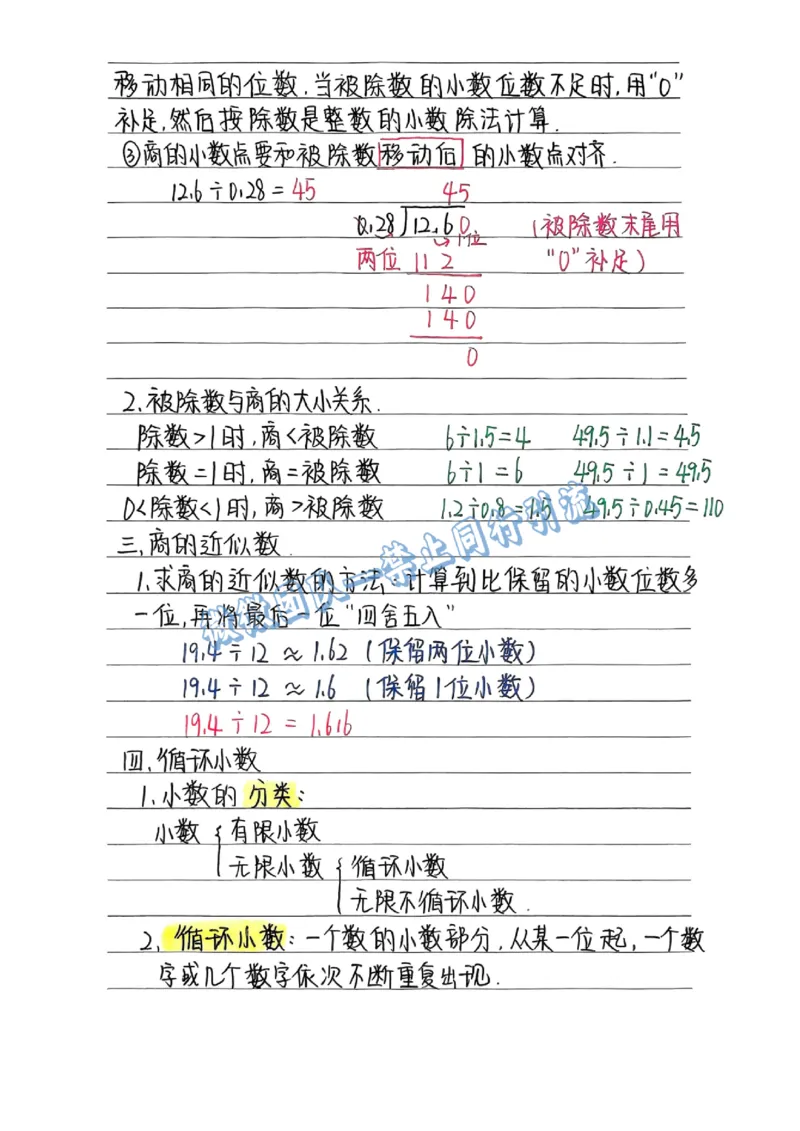 移动相同的位数.当被除数的小数位数不足时,用"0"
补足,然后按除数是整数的小数除法计算.
③商的小数点要和被除数移动后的小数点对齐.
12.6÷0.28=45
45
0.28)12.60 (被除数末尾用
1位
两位 112 "0"补足)
140
140
0
2.被除数与商的大小关系.
除数>1时,商<被除数 6÷1.5=4 49.5÷1.1=45
除数=1时,商=被除数 6÷1=6 49.5÷1=49.5
0<除数<1时,商>被除数 1.2÷0.8=1.5 49.5÷0.45=110
三.商的近似数.
1.求商的近似数的方法:计算到比保留的小数位数多
一位,再将最后一位"四舍五入"
19.4÷12≈1.62 (保留两位小数)
19.4÷12≈1.6 (保留1位小数)
19.4÷12=1.616
四.循环小数
1.小数的分类:
小数{有限小数
无限小数{循环小数
无限不循环小数.
2.循环小数:一个数的小数部分,从某一位起,一个数
字或几个数字依次不断重复出现.